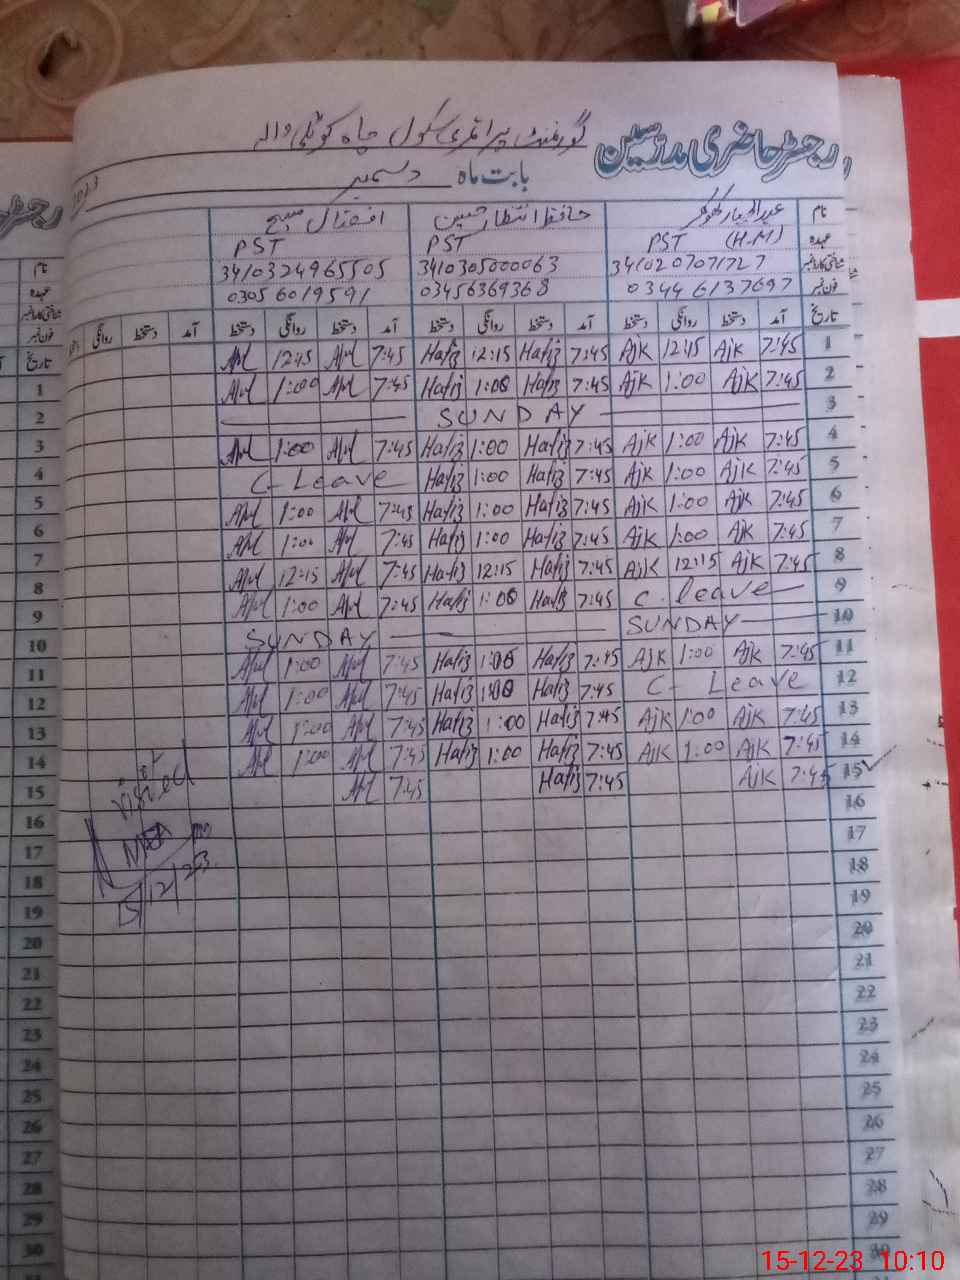 رجسٹر حاضری مدرسین گورنمنٹ پرائمری سکول چاہ کوٹلی والہ
بابت ماہ دسمبر
نام حافظ انتظار حسین
عہدہ PST (H.M) PST PST
شناختی کارڈ نمبر 3410207071727 3410305000063 3410324965505
فون نمبر 03446137697 03456369368 03056019591
تاریخ آمد دستخط روانگی دستخط آمد دستخط روانگی دستخط آمد دستخط روانگی دستخط آمد دستخط روانگی
1 7:45 Ajk 12:15 Ajk 7:45 Hafiz 12:15 Hafiz 7:45 12:15
2 7:45 Ajk 1:00 Ajk 7:45 Hafiz 1:00 Hafiz 7:45 1:00
3 SUNDAY
4 7:45 Ajk 1:00 Ajk 7:45 Hafiz 1:00 Hafiz 7:45 1:00
5 7:45 Ajk 1:00 Ajk 7:45 Hafiz 1:00 Hafiz C- Leave
6 7:45 Ajk 1:00 Ajk 7:45 Hafiz 1:00 Hafiz 7:45 1:00
7 7:45 Ajk 1:00 Ajk 7:45 Hafiz 1:00 Hafiz 7:45 1:00
8 7:45 Ajk 12:15 Ajk 7:45 Hafiz 12:15 Hafiz 7:45 12:15
9 C. leave 7:45 Hafiz 1:00 Hafiz 7:45 1:00
10 SUNDAY SUNDAY
11 7:45 Ajk 1:00 Ajk 7:45 Hafiz 1:00 Hafiz 7:45 1:00
12 C- Leave 7:45 Hafiz 1:00 Hafiz 7:45 1:00
13 7:45 Ajk 1:00 Ajk 7:45 Hafiz 1:00 Hafiz 7:45 1:00
14 7:45 Ajk 1:00 Ajk 7:45 Hafiz 1:00 Hafiz 7:45 1:00
15 7:45 Ajk 7:45 Hafiz 7:45
16
17
18
19
20
21
22
23
24
25
26
27
28
29
30
visited
MEA
15/12/23
نام
عہدہ
فون نمبر
تاریخ
1
2
3
4
5
6
7
8
9
10
11
12
13
14
15
16
17
18
19
20
21
22
23
24
25
26
27
28
29
30
15-12-23 10:10